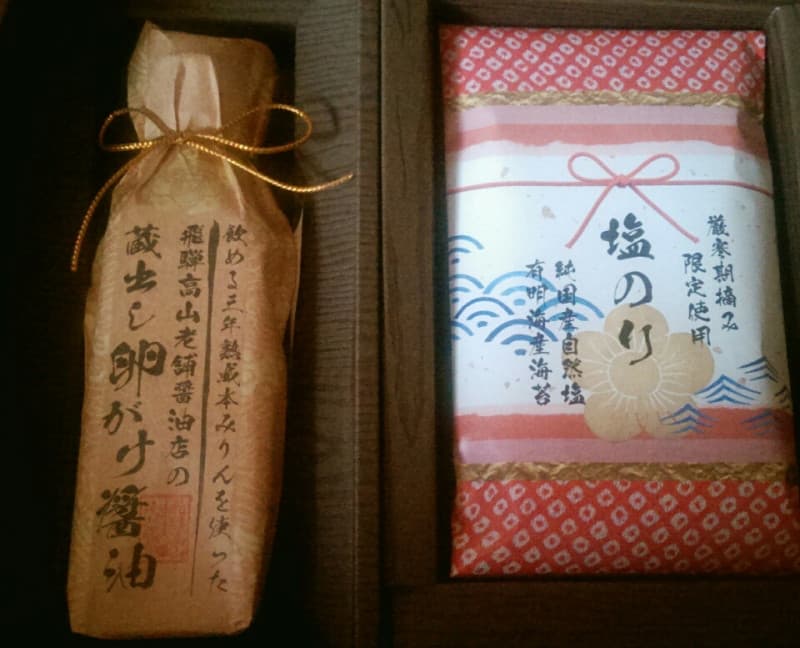 飲める三年熟成本みりんを使った
飛騨高山老舗醤油店の
蔵出し卵がけ醤油
厳寒期摘み
限定使用
塩のり
純国産自然塩
有明海産海苔